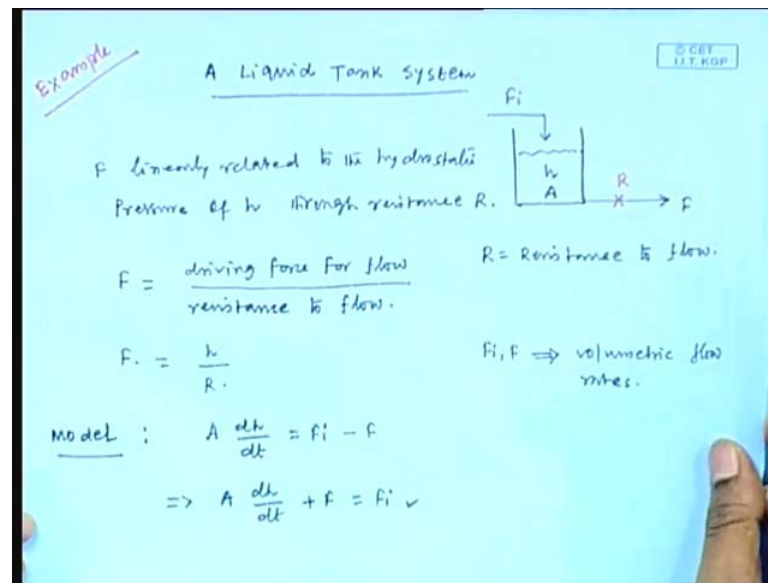 Example
A Liquid Tank System
© CET
I.I.T. KGP
Fi
h
A
R
F
F linearly related to the hydrostatic
Pressure of h through resistance R.
R = Resistance to flow.
F = driving force for flow
resistance to flow.
F. = h
R.
Fi, F ⇒ volumetric flow
rates.
Model : A dh/dt = Fi - F
=> A dh/dt + F = Fi ✓